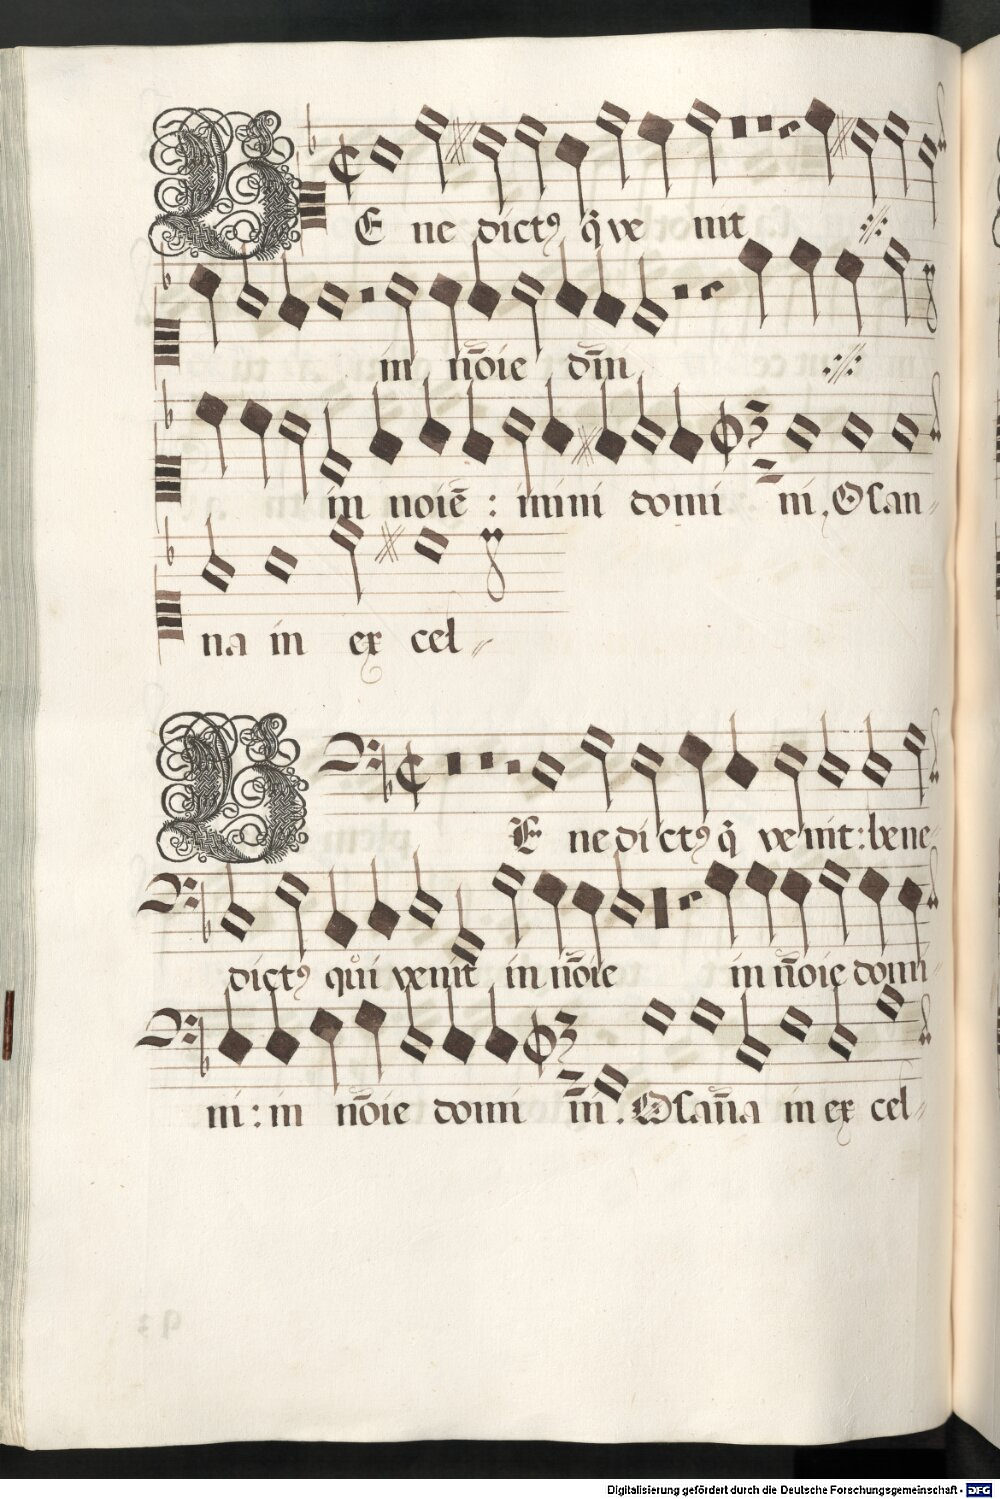 BE ne dictꝯ q̃ ve nit :∥:
in nõie dm̃ :∥:
in noiẽ : imini domi ni . Osan-
na in ex cel-
BE ne di ctꝯ q̃ ve nit : bene-
dictꝯ qui venit in nõie in nõie domi-
ni : in nõie domi ni . Osañna in ex cel-
Digitalisierung gefördert durch die Deutsche Forschungsgemeinschaft - DFG